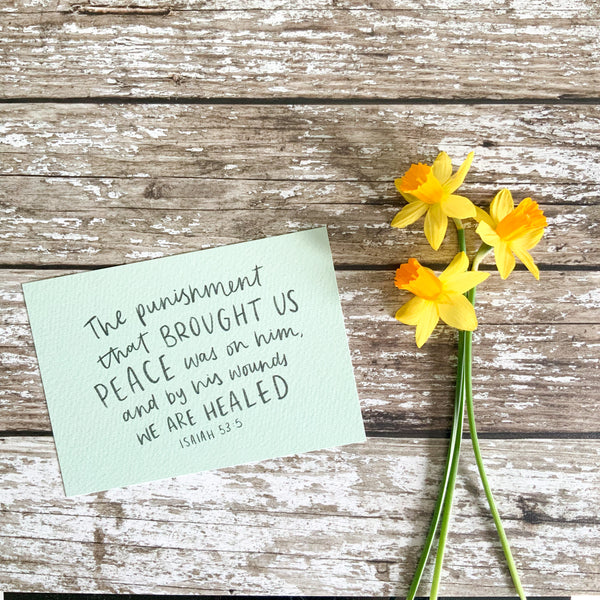 The punishment
that BROUGHT US
PEACE was on him,
and by his wounds
WE ARE HEALED
ISAIAH 53:5